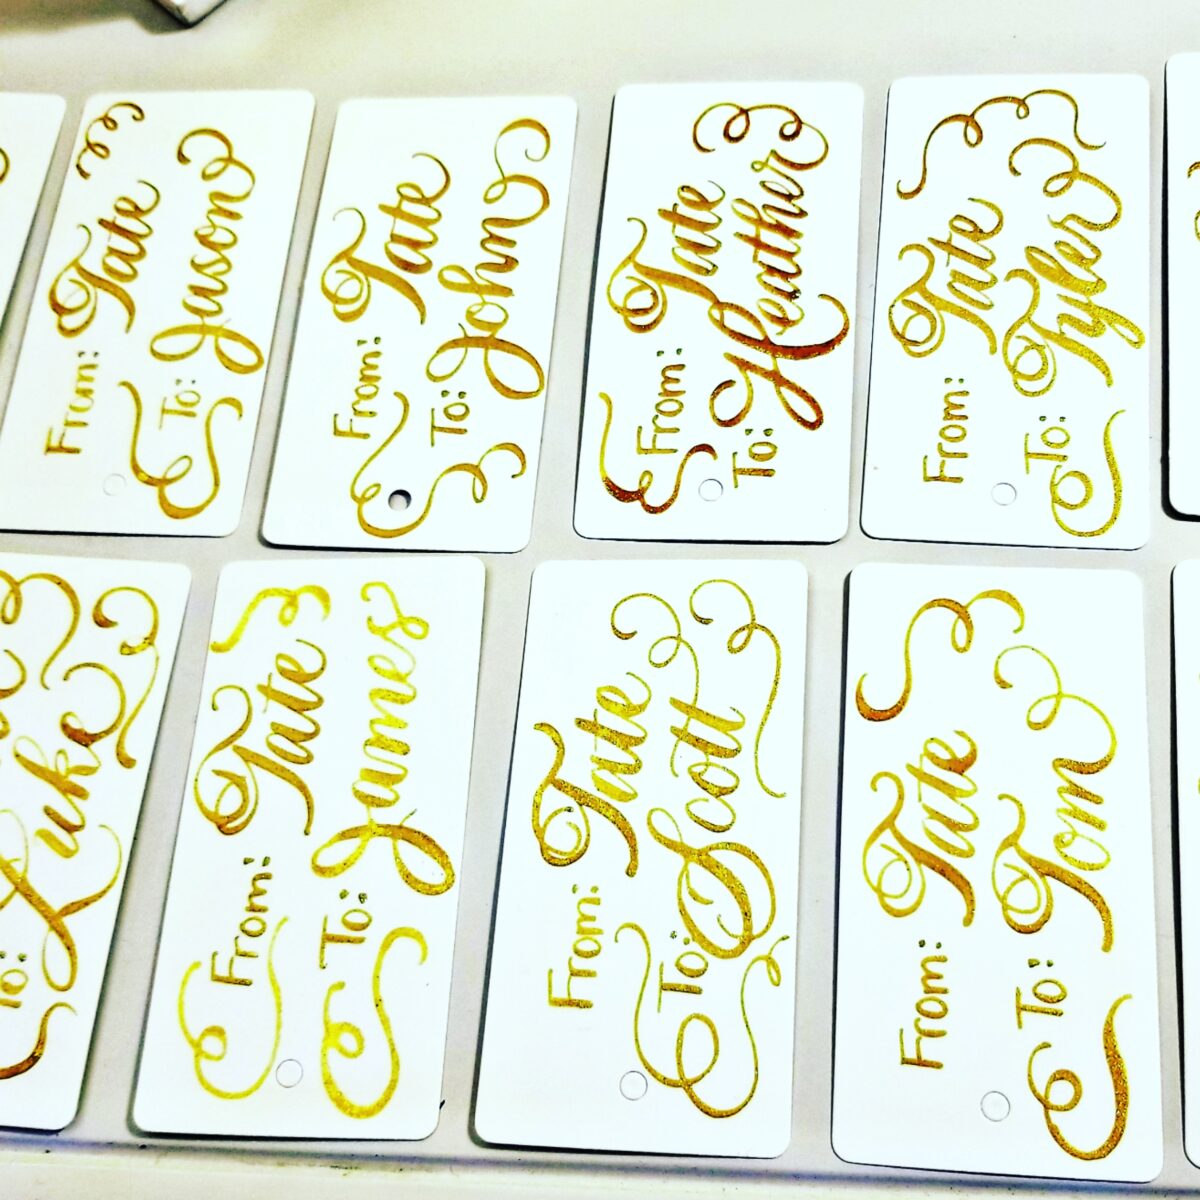 From: Tate
To: Jason
From: Tate
To: John
From: Tate
To: Heather
From: Tate
To: Tyler
To: Luke
From: Tate
To: James
From: Tate
To: Scott
From: Tate
To: Tom